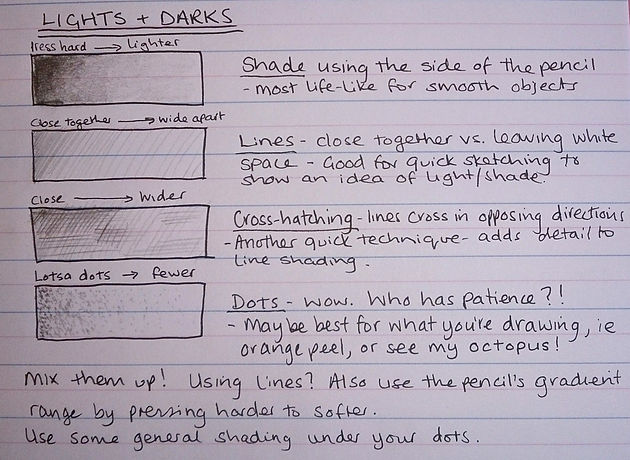 LIGHTS + DARKS
Press hard → lighter
Shade using the side of the pencil
- most life-like for smooth objects
Close together → wide apart
Lines - close together vs. leaving white
space - Good for quick sketching to
show an idea of light/shade.
Close → wider
Cross-hatching - lines cross in opposing directions
- Another quick technique - adds detail to
line shading.
Lotsa dots → fewer
Dots - wow. Who has patience?!
- Maybe best for what you're drawing, ie
orange peel, or see my octopus!
Mix them up! Using lines? Also use the pencil's gradient
range by pressing harder to softer.
Use some general shading under your dots.